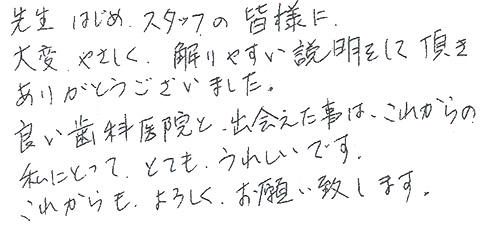 先生 はじめ、スタッフの 皆様に、
大変、やさしく、解りやすい説明をして頂き
ありがとうございました。
良い歯科医院と、出会えた事は、これからの
私にとって、とても、うれしいです。
これからも、よろしく、お願い致します。